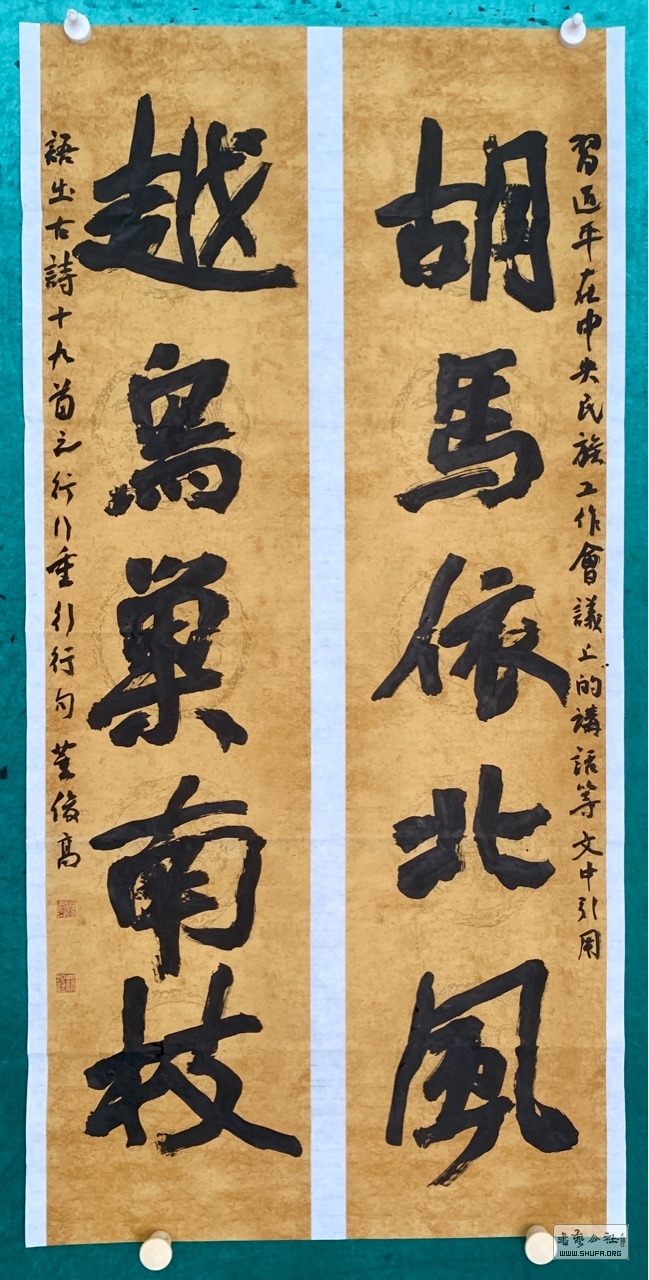 習近平在中央民族工作會議上的講話等文中引用
胡馬依北風
越鳥巢南枝
語出古詩十九首之行行重行行句 董俊高
書藝公社
WWW.SHUFA.ORG